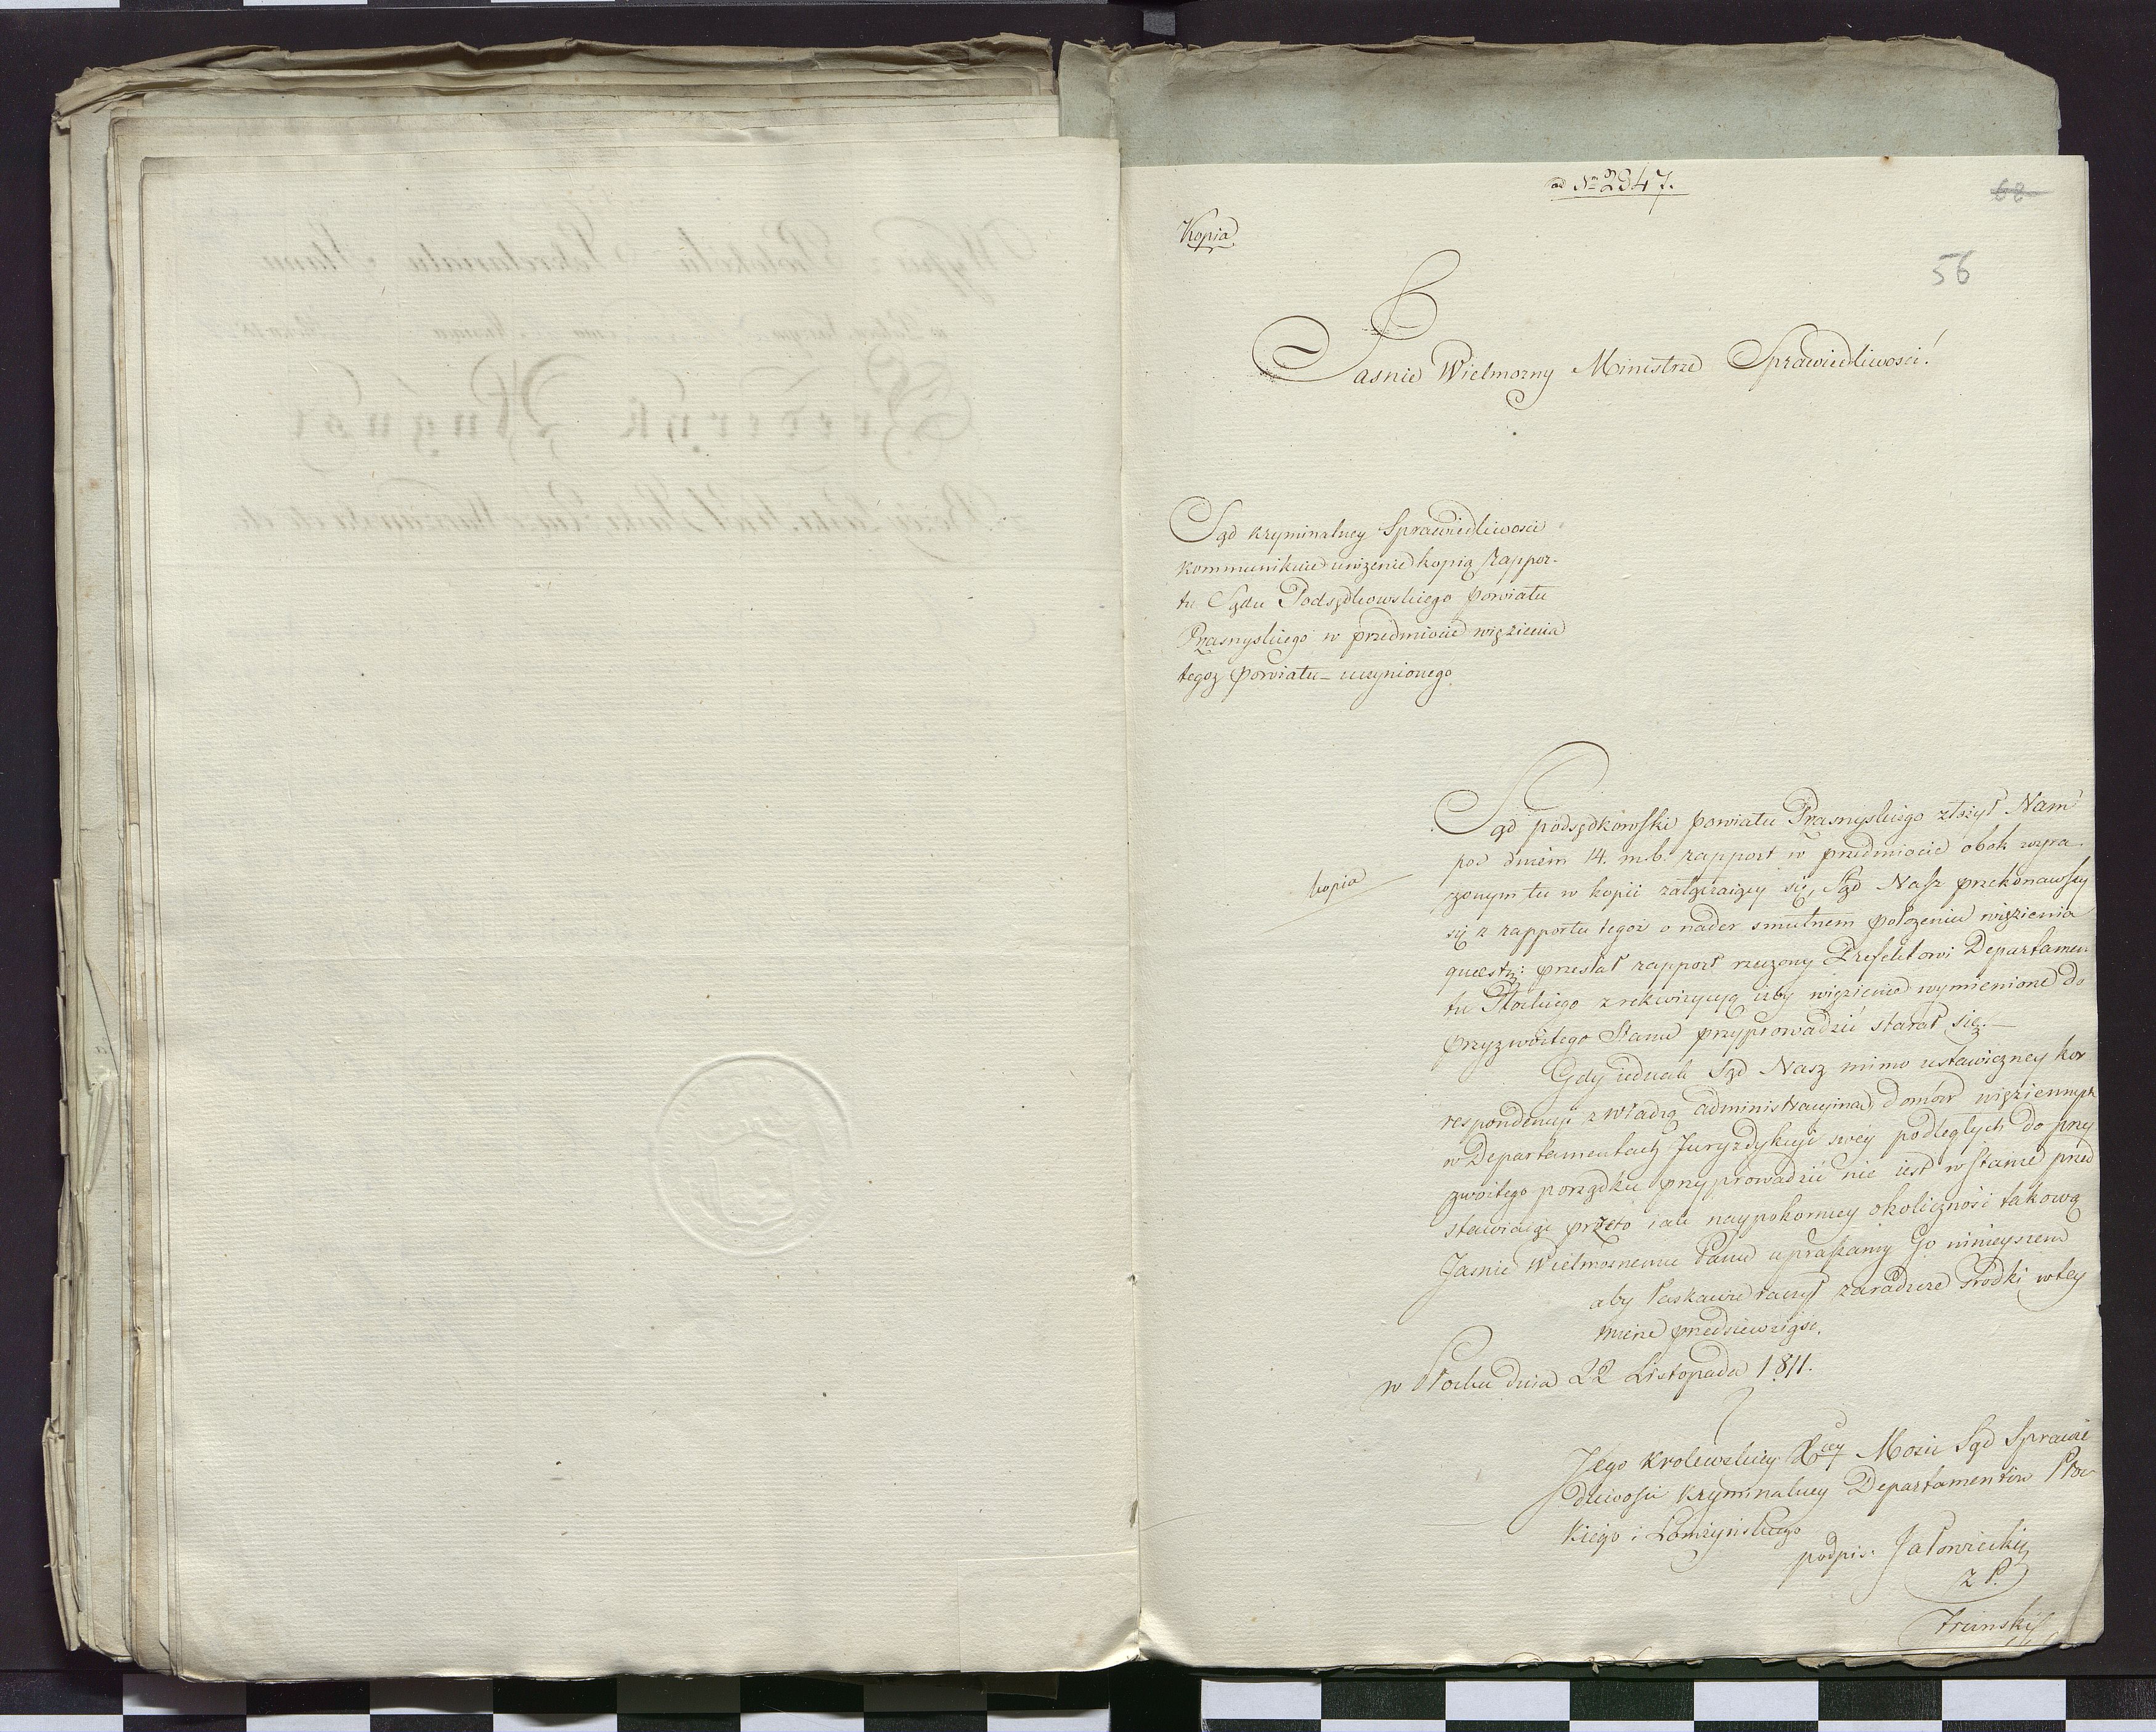 ad Nm 2947.
62
Kopia
56
Jasnie Wielmozny Ministrze Sprawiedliwosci!
Sąd kryminalney Sprawiedliwosci
kommunikuie unizenie kopią Rappor-
tu Sądu Podsędkowskiego Powiatu
Przasnyskiego w przedmiocie więzienia
tegoz Powiatu - uczynionego.
Sąd podsędkowski powiatu Przasnyskiego złożył Nam
pod dniem 14. m. b. rapport w przedmiocie obok wyra-
zonym tu w kopii załączaiący się, Sąd Nasz przekonawszy
kopia
się z rapportu tegoż o nader smutnem położeniu więzienia
quest: przesłał rapport rzeczony Prefektowi Departamen
tu Płockiego z rekwizycyą iżby więzienie wymienione do
przyzwoitego Stanu przyprowadzić starał się.-
Gdy iednak Sąd Nasz mimo ustawiczney kor
respondencyi z władzą administracyiną domów więziennych
w Departamentach Juryzdykcyi swéy podległych do przy
zwoitego porządku przyprowadzić nie iest w stanie przed
stawiaiąc przeto iak naypokorniey okoliczność takową
Jasnie Wielmoznemu Panu upraszamy Go ninieyszem
aby łaskawie raczył zaradcze środki w tey
mierze przedsiewziąść.
w Płocku dnia 22 Listopada 1811.
Jego Krolewskiey Xcey Mosci Sąd Sprawie
dliwości Kryminalney Departamentow Płoc
kiego i Łomżyńskiego
podpis: Jałowiecki
z P.